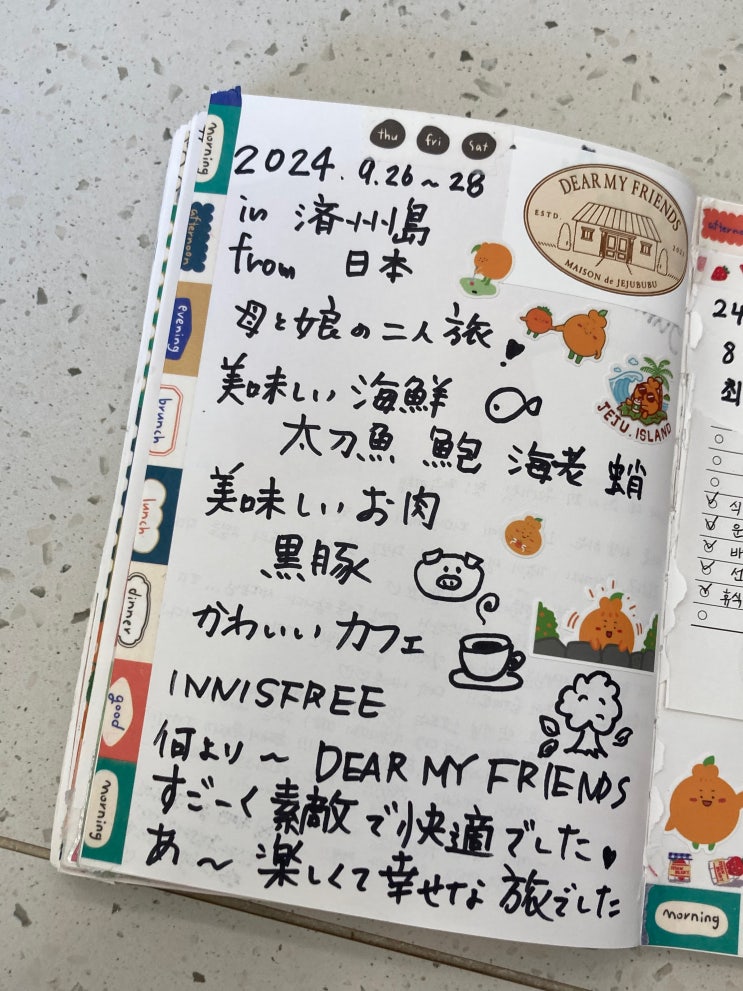 thu fri sat
2024. 9.26~28
in 済州島
from 日本
母と娘の二人旅
美味しい海鮮
太刀魚 鮑 海老 蛸
美味しいお肉
黒豚
かわいい カフェ
INNISFREE
何より~ DEAR MY FRIENDS
すごーく素敵で快適でした♥
あ~楽しくて幸せな旅でした
DEAR MY FRIENDS
ESTD.
MAISON de JEJUBUBU
JEJU.ISLAND
morning
afternoon
evening
brunch
lunch
dinner
good
morning
24
8
최
식
운
바
선
휴식
morning